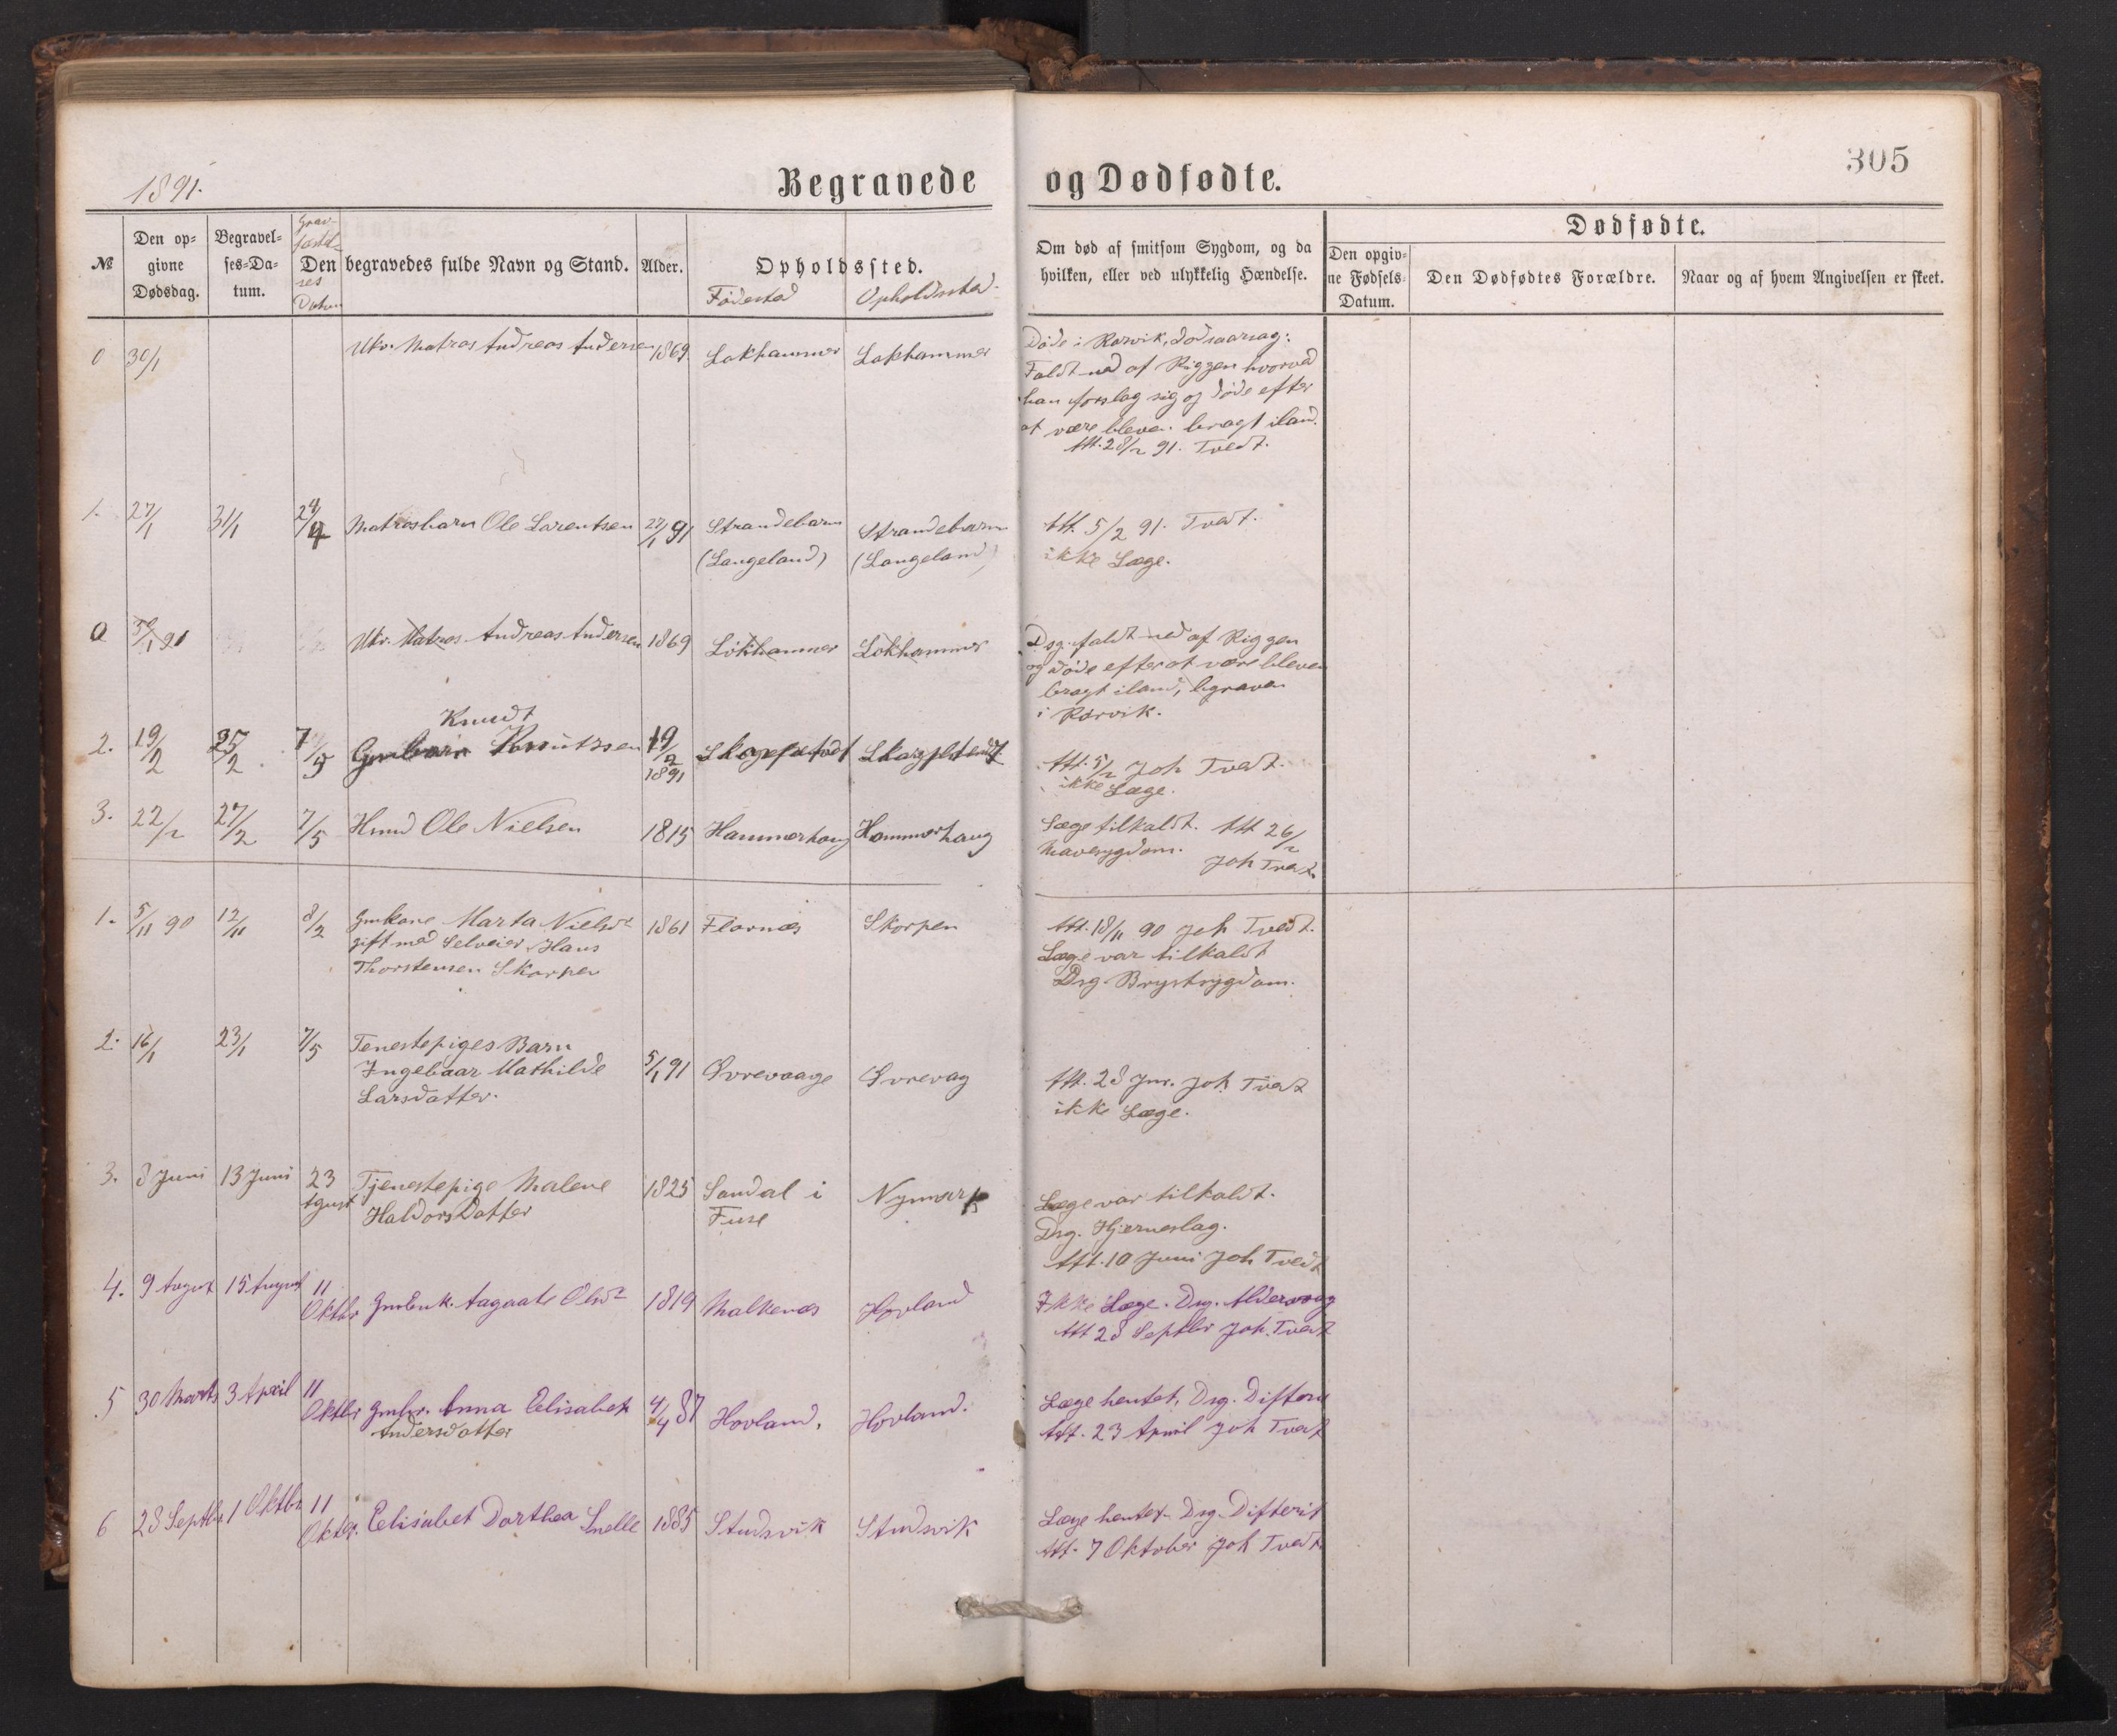 305
1891.
Begravede og Dødfødte.
№
Den op-
givne
Dødsdag.
Begravel-
ses-Da-
tum.
Grav-
fæstel-
ses
Datum
Den begravedes fulde Navn og Stand.
Alder.
Opholdssted.
Födested Opholdssted.
Om død af smitsom Sygdom, og da
hvilken, eller ved ulykkelig Hændelse.
Dødfødte.
Den opgiv-
ne Fødsels-
Datum.
Den Dødfødtes Forældre.
Naar og af hvem Angivelsen er skeet.
0 30/1 Ukr. Matros Andreas Andersen 1869. Lokhammer Lokhammer
Døde i Rørvik, dødsaarsag:
Faldt ned af Riggen hvorved
han forslag sig og døde efter
at være bleven bragt iland.
Att. 28/2 91. Tvedt.
1. 27/1 31/1 24/4 Matrosbarn Ole Larentsen 27/1 91 Strandebarm Strandebarm
(Langeland) (Langeland)
Att. 5/2 91. Tvedt.
ikke Læge.
0 30/1 91 Ukr. Matros Andreas Andersen 1869 Lökhammer Lokhammer
Dsg. faldt ned af Riggen
og døde efter at være bleven
bragt iland, begraven
i Rørvik.
Knudt
2. 19/2 25/2 7/5 Gmbarn Knutssen 19/2
1891
Att. 5/2 Joh Tvedt.
ikke Læge.
3. 22/2 27/2 7/5 Hmd Ole Nielsen 1815 Hammerhaug Hammerhaug
Læge tilkaldt. Att 26/2
Mavesygdom. Joh Tvedt.
1. 5/11 90 12/11 8/2 Gmkone Marta Nielsdt 1861 Flornæs Skorpen
gift med Selveier Hans
Thorstensen Skorpen
Att. 18/11 90 Joh Tvedt.
Læge var tilkaldt
Dsg. Brystsygdom.
2. 16/1 23/1 7/5 Tenestepiges Barn
Ingebaar Mathilde 5/1 91 Øvrevaage Øvrevag
Larsdatter.
Att. 28 Jnr. Joh Tvedt
ikke Læge.
3. 8 Juni 13 Juni 23 Tjenestepige Malene 1825 Sandal i Nymark
Agust Haldorsdatter Fuse
Læge var tilkaldt.
Dsg. Hjerneslag.
Att. 10 Juni Joh Tvedt
4. 9 August 15 August 11
Oktbr GmEnk. Aagaate Olsdt 1819 Malkenæs Hovland
Ikke Læge. Dsg. Aldersvag
Att 28 Septbr Joh. Tvedt
5 30 Marts 3 April 11
Oktbr Gmbr. Anna Elisabet 4/4 87 Hovland. Hovland.
Andersdatter
Læge hentet, Dsg. Difteri
Att. 23 April Joh Tvedt
6 28 Septbr 1 Oktbr 11
Oktbr. Elisabet Dorthea Snelle 1885 Studsvik Studsvik
Læge hentet Dsg. Difterit
Att. 7 Oktober Joh Tvedt.